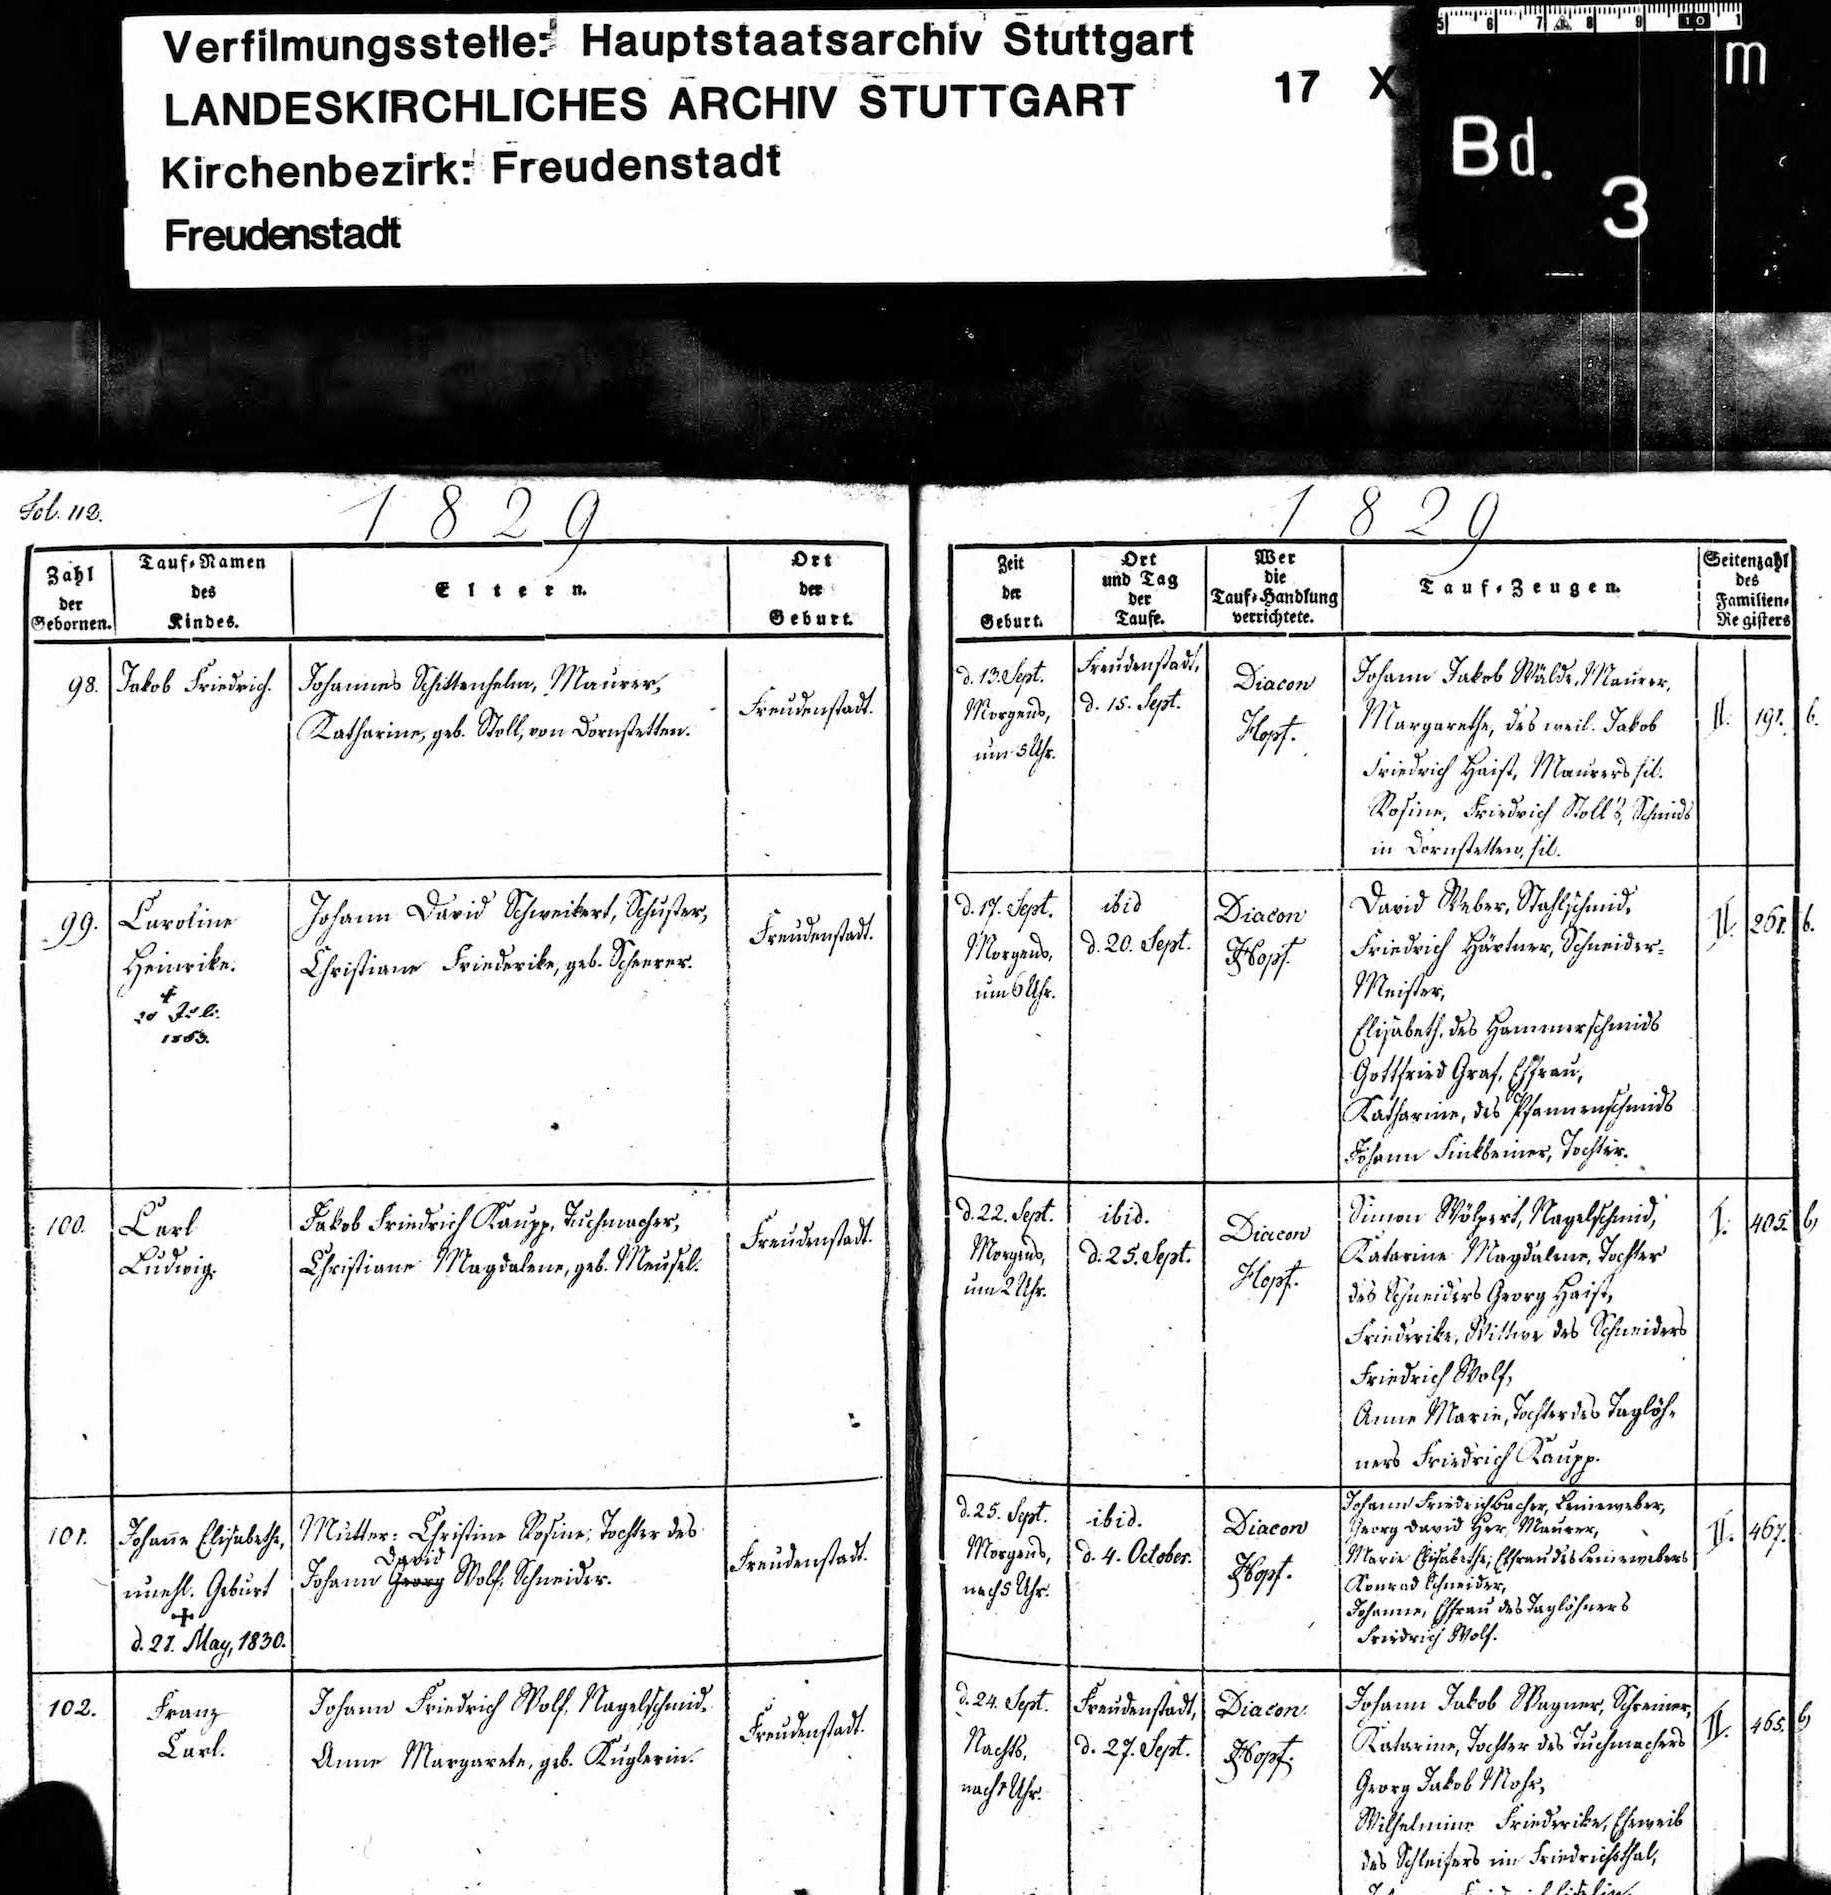 Verfilmungsstelle: Hauptstaatsarchiv Stuttgart
LANDESKIRCHLICHES ARCHIV STUTTGART
17 X
Kirchenbezirk: Freudenstadt
Freudenstadt
5 6 7 8 9 10 1
m
Bd.
3
Fol. 112.
1829
Zahl
der
Gebornen.
Tauf-Namen
des
Kindes.
Eltern.
Ort
der
Geburt.
98.
Jakob Friedrich.
Johannes Schittenhelm, Maurer,
Katharine, geb. Stoll, von Dornstetten.
Freudenstadt.
99.
Caroline
Heinrike.
Juli
Johann David Schweikert, Schuster,
Christiane Friederike, geb. Scheerer.
Freudenstadt.
100.
Carl
Ludwig.
Jakob Friedrich Kaupp, Tuchmacher,
Christiane Magdalene, geb. Meusel.
Freudenstadt.
101.
Johanne Elisabethe,
unehl. Geburt
+
d. 21. May, 1830.
Mutter: Christine Rosine, Tochter des
David
Johann Georg Wolf, Schneider.
Freudenstadt.
102.
Franz
Carl.
Johann Friedrich Wolf, Nagelschmid.
Anne Margarete, geb. Kuglerin.
Freudenstadt.
1829
Zeit
der
Geburt.
Ort
und Tag
der
Taufe.
Wer
die
Tauf-Handlung
verrichtete.
Tauf-Zeugen.
Seitenzahl
des
Familien-
Registers
d. 13. Sept.
Morgens,
um 5 Uhr.
Freudenstadt,
d. 15. Sept.
Diacon
Hopf.
Johann Jakob Wälde, Maurer,
Margarethe, des weil. Jakob
Friedrich Haist, Maurers fil.
Rosine, Friedrich Stoll's, Schmids
in Dornstetten, fil.
II. 191. b.
d. 17. Sept.
Morgens,
um 6 Uhr.
ibid
d. 20. Sept.
Diacon
Hopf.
David Weber, Stahlschmid,
Friedrich Härtner, Schneider-
Meister,
Elisabeth, des Hammerschmids
Gottfried Graf, Ehfrau,
Katharine, des Pfannenschmids
Johann Finkbeiner, Tochter.
II. 261. b.
d. 22. Sept.
Morgens,
um 2 Uhr.
ibid.
d. 25. Sept.
Diacon
Hopf.
Simon Wölpert, Nagelschmid,
Katarine Magdalene, Tochter
des Schneiders Georg Haist,
Friederike, Wittwe des Schneiders
Friedrich Wolf,
Anne Marie, Tochter des Taglöh-
ners Friedrich Kaupp.
I. 405. b
d. 25. Sept.
Morgens,
nach 5 Uhr.
ibid.
d. 4. October.
Diacon
Hopf.
Johann Friedrich Bacher, Leineweber,
Georg David Maurer,
Marie Elisabethe, Ehfrau des Leinewebers
Konrad Schneider,
Johanne, Ehfrau des Taglöhners
Friedrich Wolf.
II. 467.
d. 24. Sept.
Nachts,
nach Uhr.
Freudenstadt,
d. 27. Sept.
Diacon
Hopf.
Johann Jakob Wagner, Schreiner,
Katarine, Tochter des Tuchmachers
Georg Jakob Mohr,
Wilhelmine Friederike, Eheweib
des Schleifers im Friedrichsthal,
II. 465. b